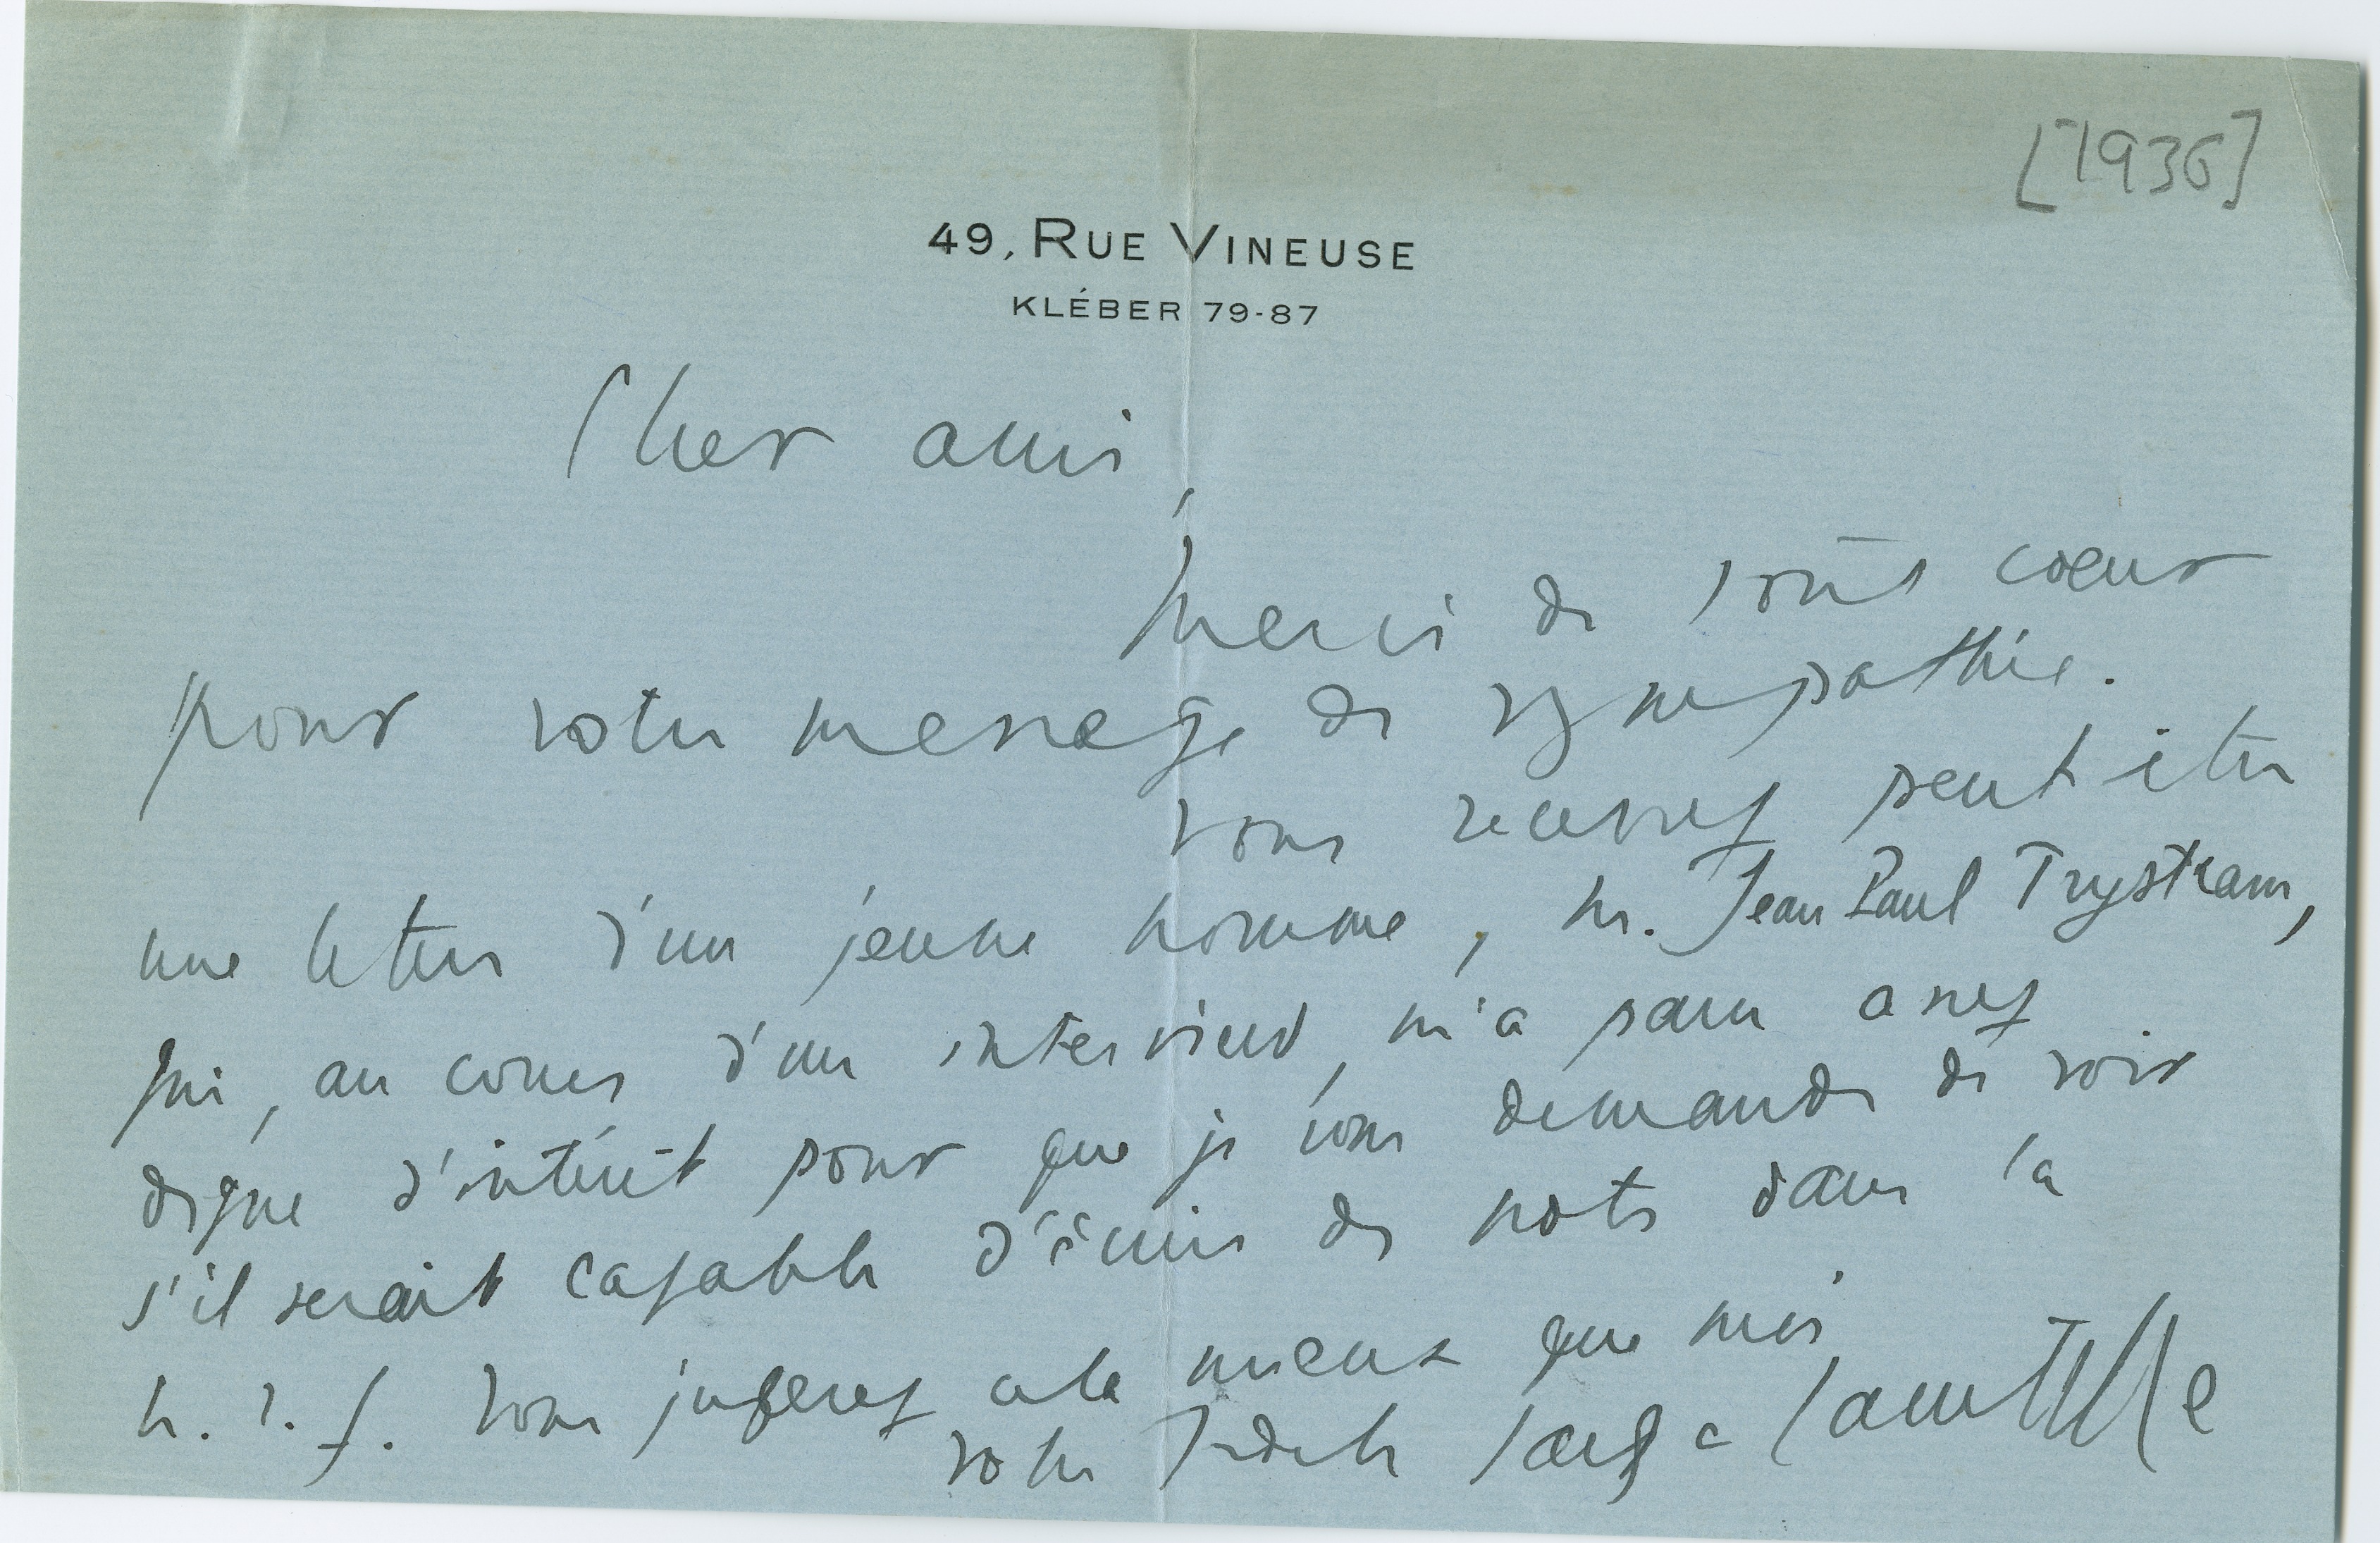 [1936]
49, RUE VINEUSE
KLÉBER 79-87
Cher ami,
Merci de tout cœur
pour votre message de sympathie.
Vous recevrez peut être
une lettre d'un jeune homme, M. Jean Paul Trystram,
qui, au cours d'un interview, m'a paru assez
digne d'intérêt pour que je vous demande de voir
s'il serait capable d'écrire des notes dans la
N. R. F. Vous jugerez cela mieux que moi.
Votre fidèle